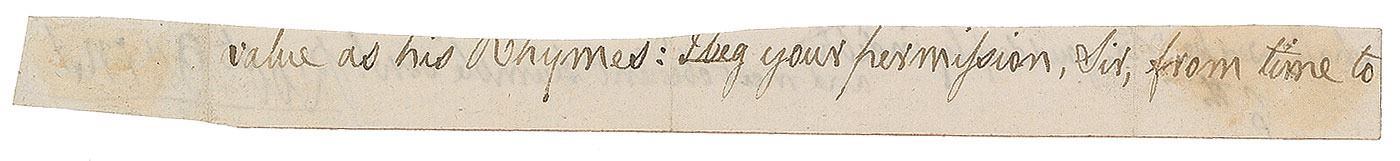 value as his Rhymes: I beg your permiſsion, Sir, from time to